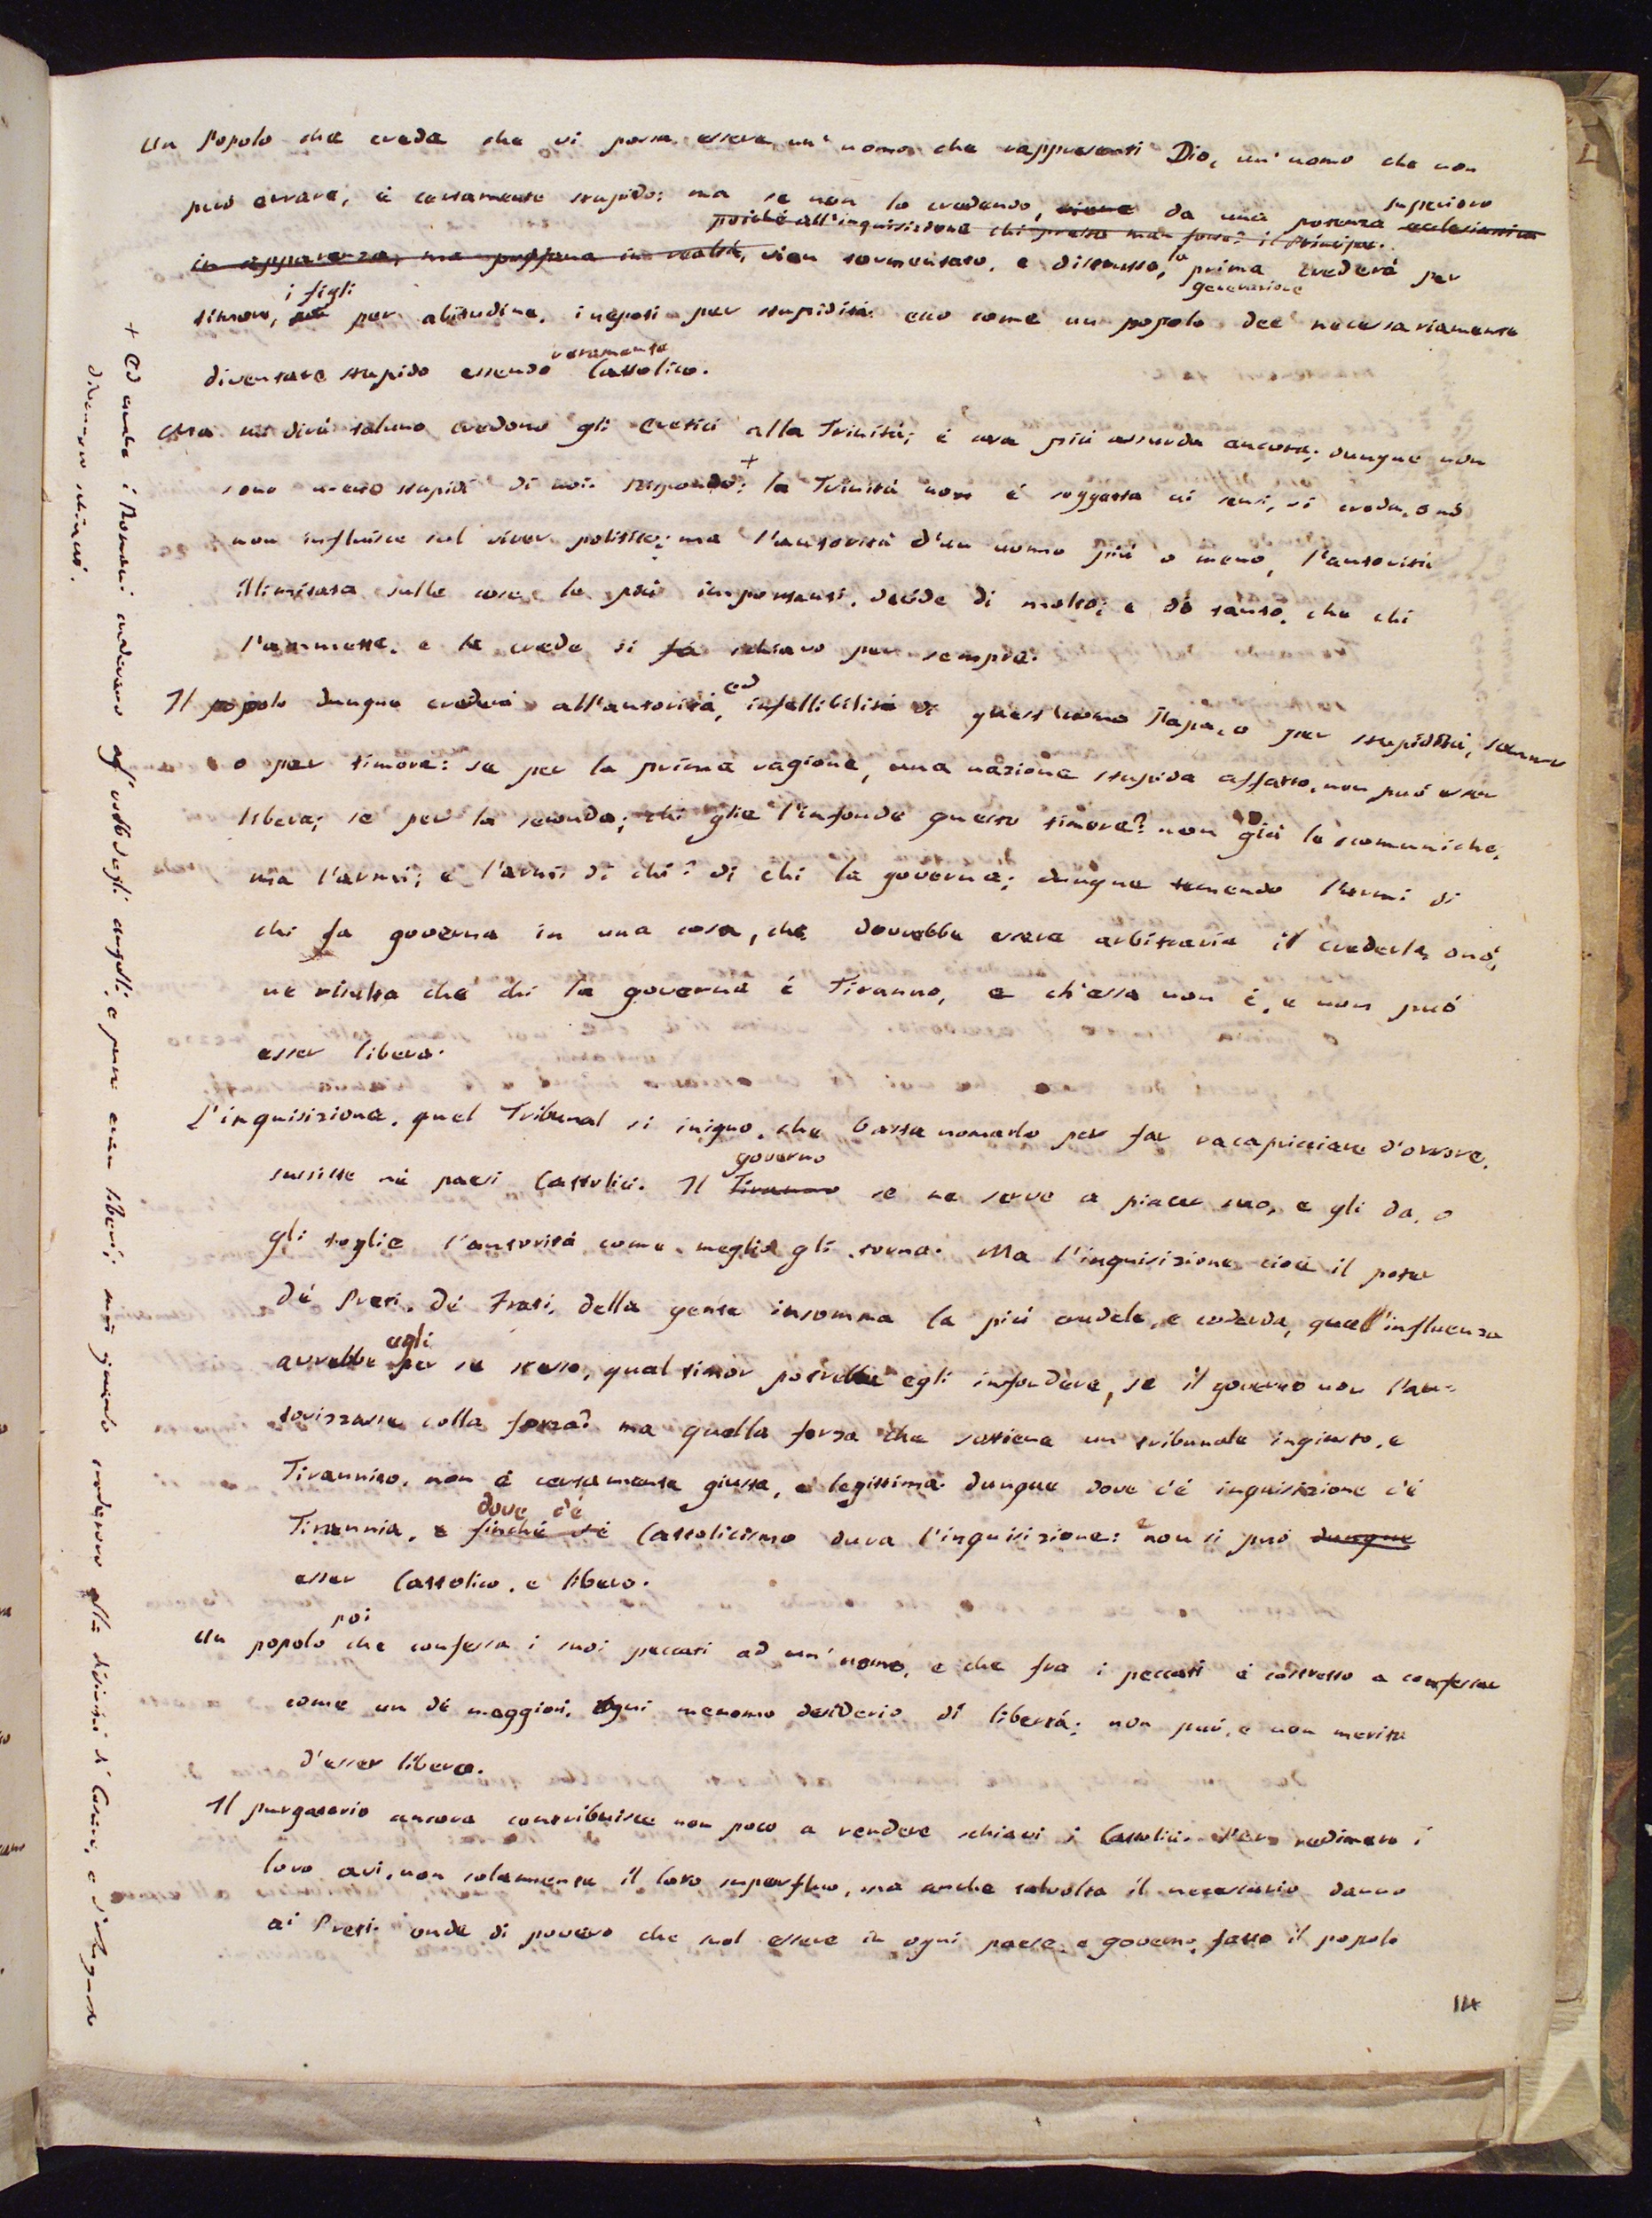 Un Popolo che creda che vi possa essere un' uomo che rappresenti Dio, un' uomo che non
può errare, è certamente stupido: ma se non lo credendo, viene da una potenza ecclesiastica superiore
poiché all'inquisizione chi presta man forte? il Principe.
in apparenza, ma profana in realtà, vien tormentato, e distrutto, la prima generazione crederà per
timore, i figli per abitudine, i neposi per stupidità: ecco come un popolo dee necessariamente
diventare stupido essendo veramente Cattolico.
Ma mi dirà taluno credono gli Eretici alla Trinità; è cosa più assurda ancora; dunque non
sono meno stupidi di noi: rispondo: + la Trinità non è soggetta ai sensi, si creda, o nò
non influisce sul viver politico; ma l'autorità d'un uomo più o meno, l'autorità
illimitata sulle cose le più importanti, decide di molto; e di tanto, che chi
l'ammette, e la crede si fà schiavo per sempre.
Il popolo dunque crederà all'autorità, ed infallibilità di quest'uomo Papa, o per stupidità,
o per timore: se per la prima ragione, una nazione stupida affatto, non può esser
libera; se per la seconda; chi glie l'infonde questo timore? non già le scomuniche,
ma l'armi; e l'armi di chi? di chi la governa; dunque temendo l'armi di
chi la governa in una cosa, che dovrebbe essere arbitraria il crederla, o nò,
ne risulta che chi la governa è Tiranno, e ch'essa non è, e non può
esser libera.
L'inquisizione, quel Tribunal sì iniquo, che basta nomarlo per far racapricciare d'orrore,
sussiste nè paesi Cattolici. Il Tiranno governo se ne serve a piacer suo, e gli da, o
gli toglie l'autorità come meglio gli torna. Ma l'inquisizione cioè il poter
dè Preti, dè Frati, della gente insomma la più crudele, e codarda, qual'influenza
avrebbe egli per se stesso, qual timor potrebbe egli infondere, se il governo non l'au-
torizzasse colla forza? ma quella forza che sostiene un tribunale ingiusto, e
Tirannico, non è certamente giusta, e legittima. dunque dove c'è inquisizione c'è
Tirannia, e finché v'è dove c'è Cattolicismo dura l'inquisizione: e non si può dunque
esser Cattolico, e libero.
Un popolo poi che confessa i suoi peccati ad un' uomo, e che fra i peccati è costretto a confessar
come un dè maggiori, ogni menomo desiderio di libertà; non può, e non merita
d'esser libero.
Il purgatorio ancora contribuisce non poco a rendere schiavi i Cattolici. Per redimere i
loro avi, non solamente il loro superfluo, ma anche talvolta il necessario danno
ai Preti. onde di povero che suol essere in ogni paese, e governo, fatto il popolo
114
+ Ed anche i Romani credevano agl' voli degli augelli, e pure eran liberi; ma quando credettero alla divinità di Cesare, e d'Augusto
divennero schiavi.